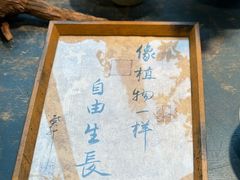 像植物一样
自由生長